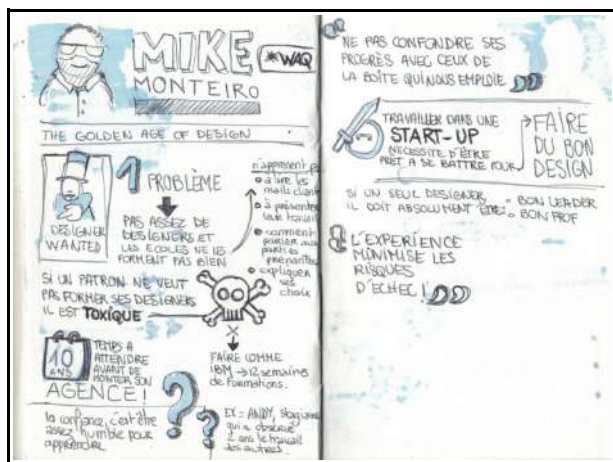 MIKE
MONTEIRO
#WAQ
THE GOLDEN AGE OF DESIGN
DESIGNER
WANTED
1 PROBLÈME
PAS ASSEZ DE
DESIGNERS ET
LES ECOLES NE LES
FORMENT PAS BIEN
n'apprennent pas
à lire les
mails client
à présenter
leur travail
comment
parler aux
parties
prenantes
expliquer
ses
choix
SI UN PATRON NE VEUT
PAS FORMER SES DESIGNERS
IL EST TOXIQUE
10
ANS
TEMPS A
ATTENDRE
AVANT DE
MONTER SON
AGENCE !
FAIRE COMME
IBM → 12 semaines
de formations.
la confiance, c'est être
assez humble pour
apprendre
EX = ANDY, stagiaire
qui a observé
2 ans le travail
des autres.
NE PAS CONFONDRE SES
PROGRÈS AVEC CEUX DE
LA BOÎTE QUI NOUS EMPLOIE
TRAVAILLER DANS UNE
START-UP
NECESSITE D'ÊTRE
PRÊT A SE BATTRE POUR
FAIRE
DU BON
DESIGN
SI UN SEUL DESIGNER,
IL DOIT ABSOLUMENT ÊTRE :
BON LEADER
BON PROF
L'EXPERIENCE
MINIMISE LES
RISQUES
D'ECHEC !